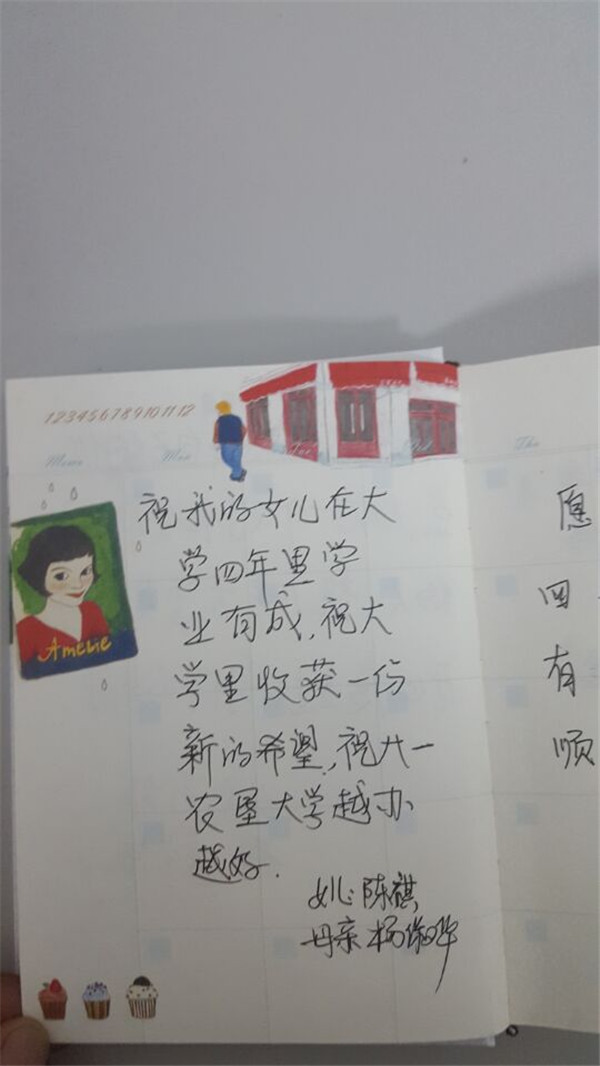 123456789101112
祝我的女儿在大
学四年里学
业有成,祝大
学里收获一份
新的希望,祝八一
农垦大学越办
越好.
女儿:陈祺
母亲 杨
Amelie
愿
四
有
顺